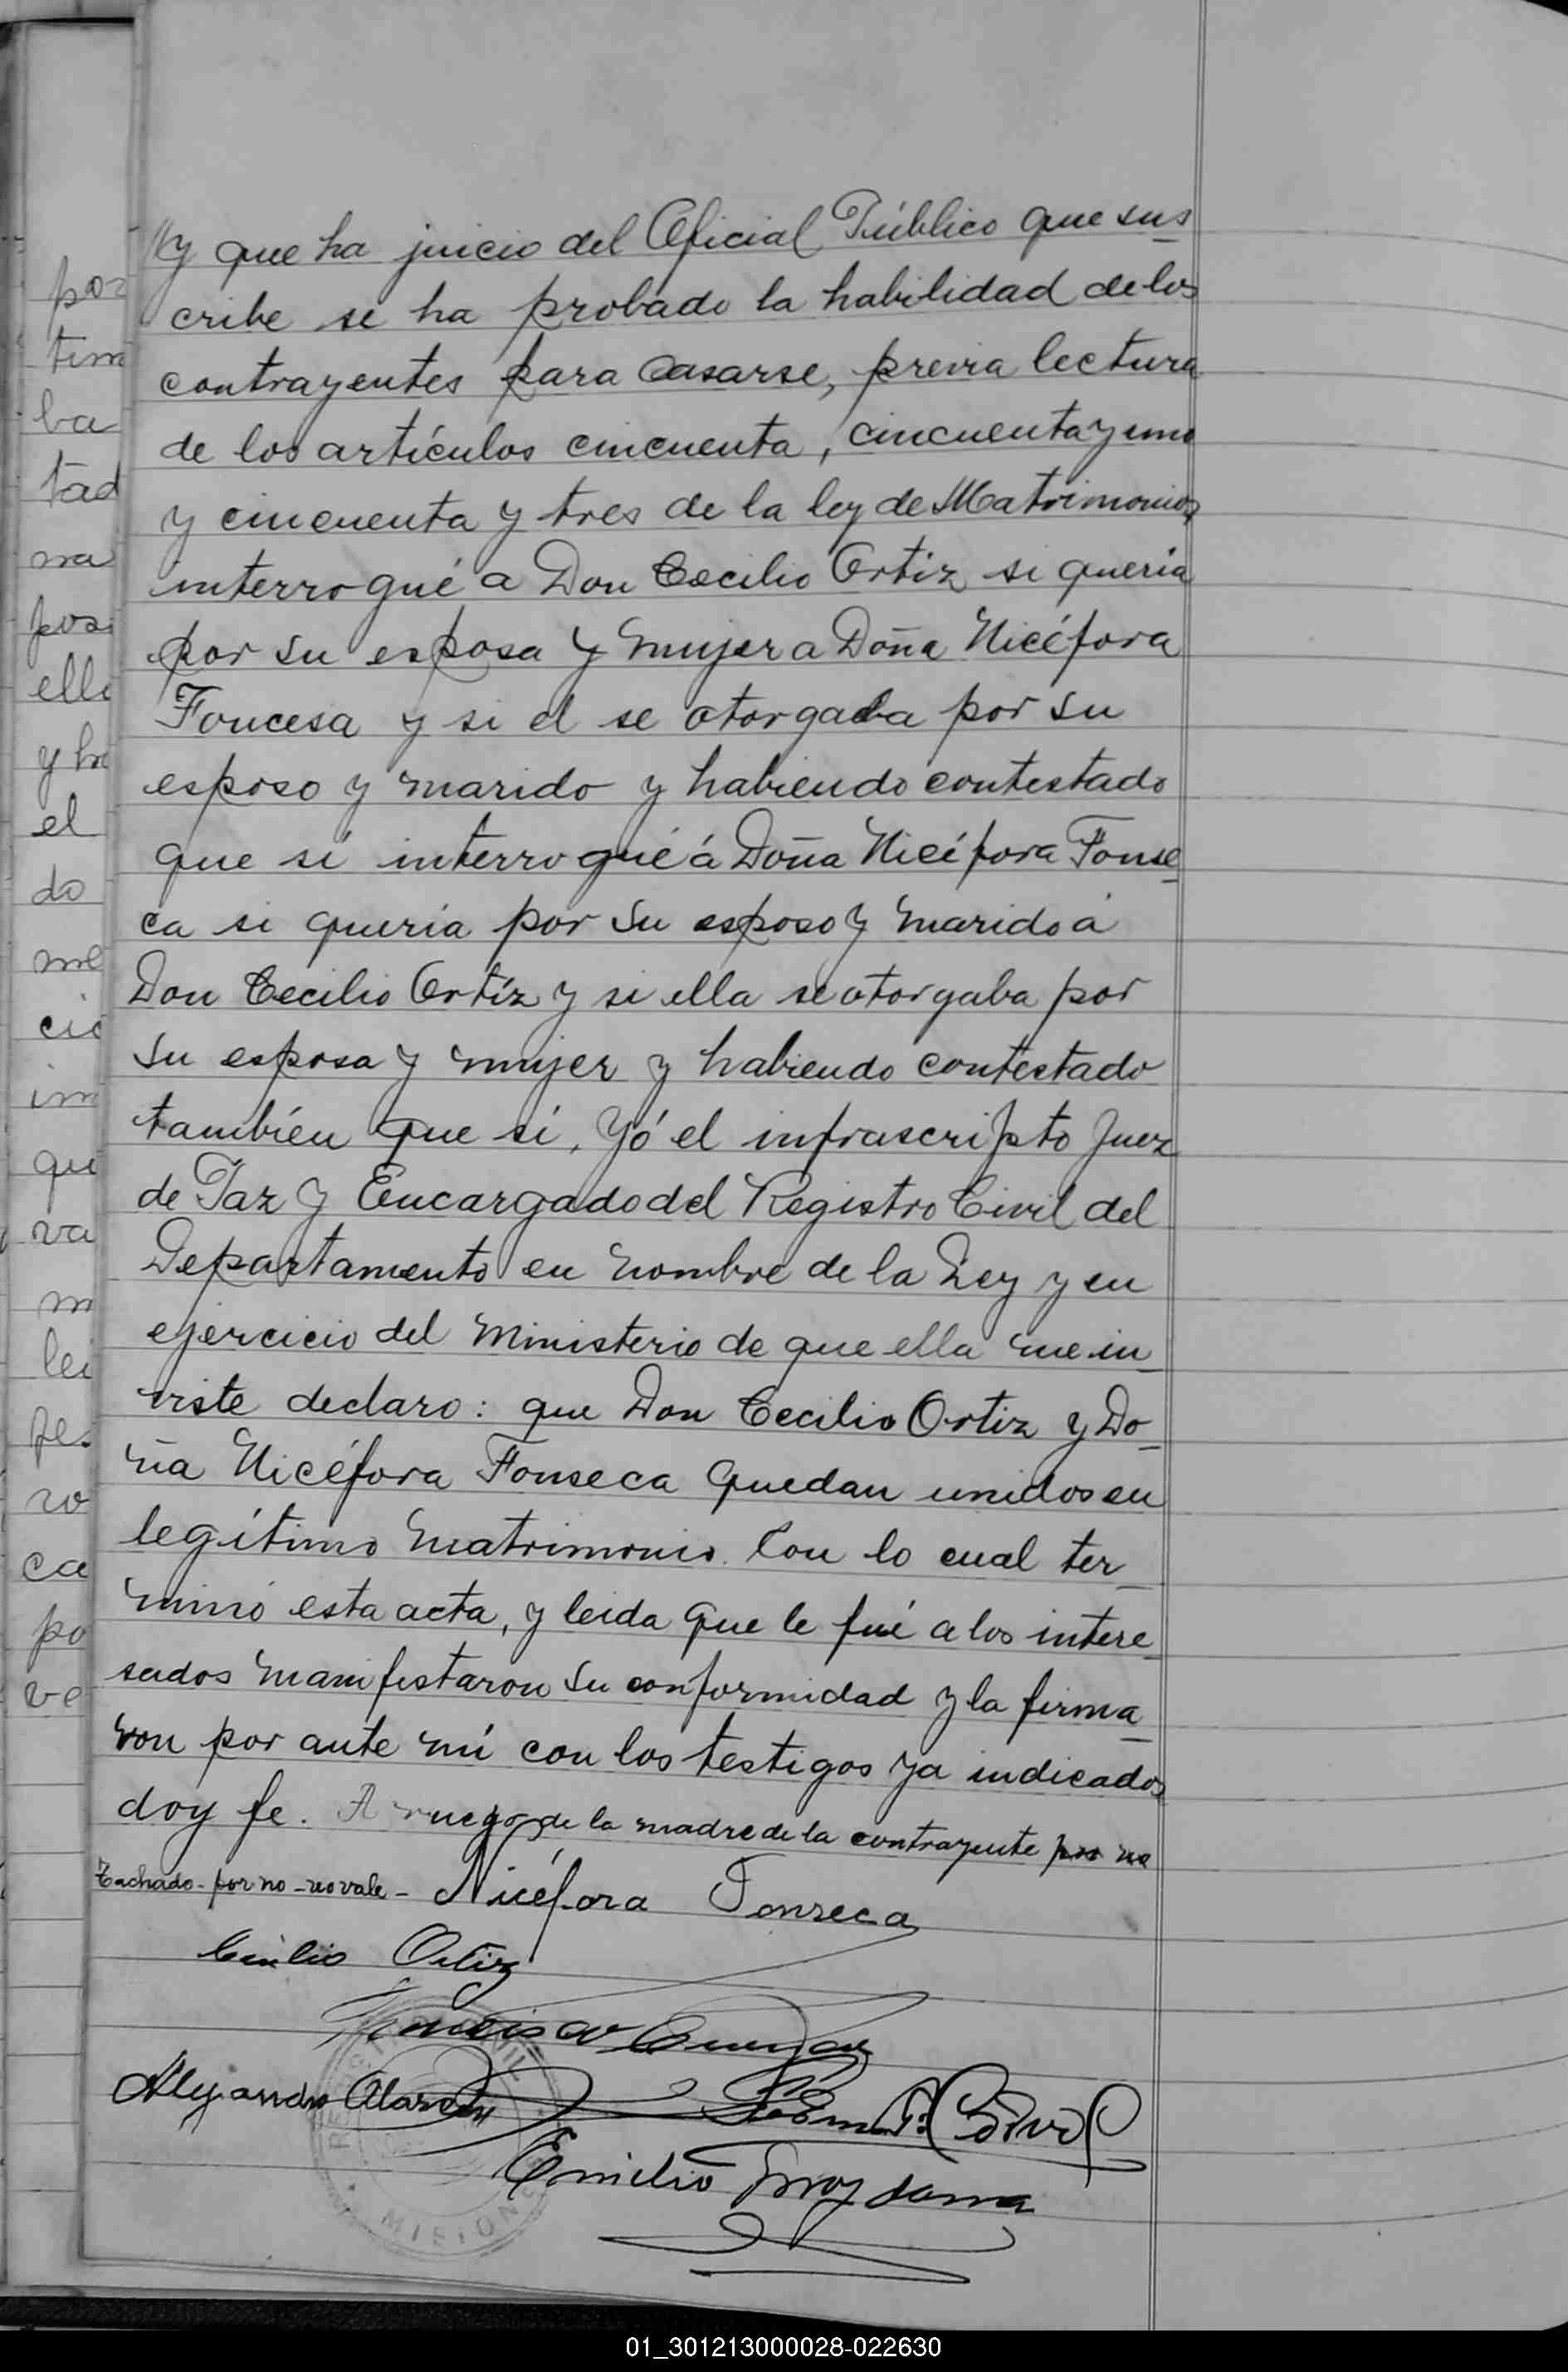 y que ha juicio del Oficial Público que sus
cribe se ha probado la habilidad de los
contrayentes para casarse, previa lectura
de los artículos cincuenta, cincuenta y uno
y cincuenta y tres de la ley de Matrimonio,
interrogué a Don Cecilio Ortiz si queria
por su esposa y mujer a Doña Nicéfora
Foncesa y si el se otorgaba por su
esposo y marido y habiendo contestado
que sí interrogué á Doña Nicéfora Fonse
ca si queria por su esposo y marido á
Don Cecilio Ortíz y si ella se otorgaba por
su esposa y mujer y habiendo contestado
también que sí, Yó el infrascripto Juez
de Paz y Encargado del Registro Civil del
Departamento en nombre de la Ley y en
ejercicio del Ministerio de que ella me in
viste declaro: que Don Cecilio Ortiz y Do
ña Nicéfora Fonseca quedan unidos en
legítimo matrimonio. Con lo cual ter
minó esta acta, y leida que le fué a los intere
sados manifestaron su conformidad y la firma
ron por ante mí con los testigos ya indicados
doy fe. A ruego de la madre de la contrayente por no
Tachado - por no - no vale - Nicéfora Fonseca
Cecilio Ortiz
Francisco
Alejandro Alarcon
Emilio
MISIONES
por
tim
ba
tad
na
pos
ella
y ha
el
do
me
cio
im
qu
va
m
lei
fes
ro
ca
po
ve
01_301213000028-022630